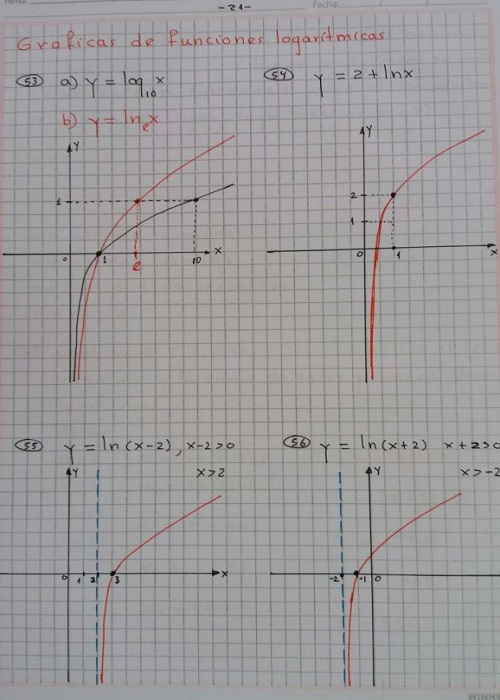 -21-
Fecha:
Graficas de funciones logarítmicas
53 a) y = log₁₀ x
b) y = lnₑx
54 y = 2 + lnx
Y
1
0 1 e 10 X
Y
2
1
0 1 X
55 y = ln(x-2), x-2>0
x>2
Y
0 1 2 3 X
56 y = ln(x+2) x+2>0
x>-2
Y
-2 -1 0
WINNE